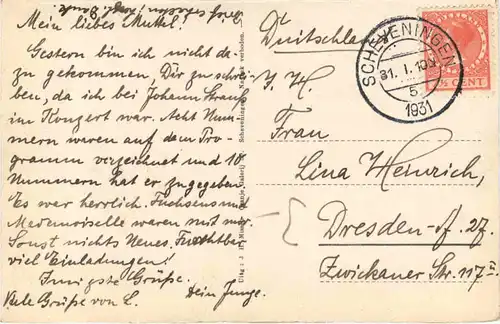 Mein liebes Muttel!
Gestern bin ich nicht da-
zu gekommen, Dir zu schrei-
ben, da ich bei Johann Strauss
im Konzert war. Acht Num-
mern waren auf dem Pro-
gramm verzeichnet und 18
Nummern hat er zugegeben.
Es war herrlich. Fuchsens und
Mademoiselle waren mit mir.
Sonst nichts Neues. Furchtbar
viel Einladungen!
Innigste Grüße.
Dein Junge.
Viele Grüße von L.
Scheveningen. No. verboden.
Deutschland
I. H.
Frau
Lina Heinrich,
Dresden-A. 27.
Zwickauer Str. 117 II
SCHEVENINGEN
31. I. 19
5
1931
7½ CENT